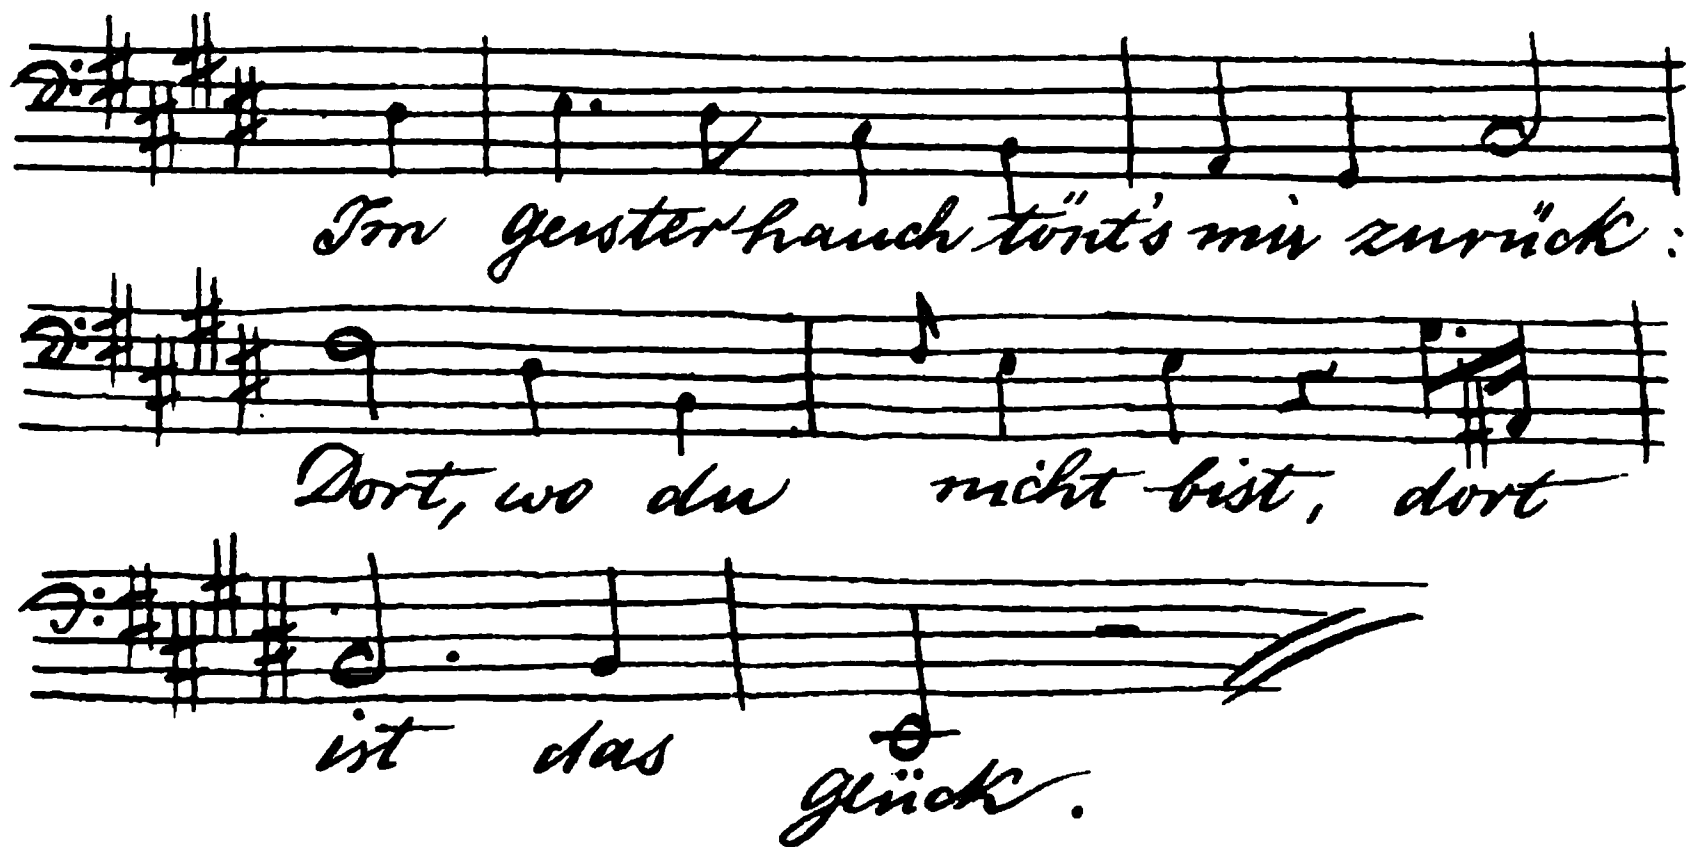 Im Geisterhauch tönt's mir zurück:
Dort, wo du nicht bist, dort
ist das
Glück.